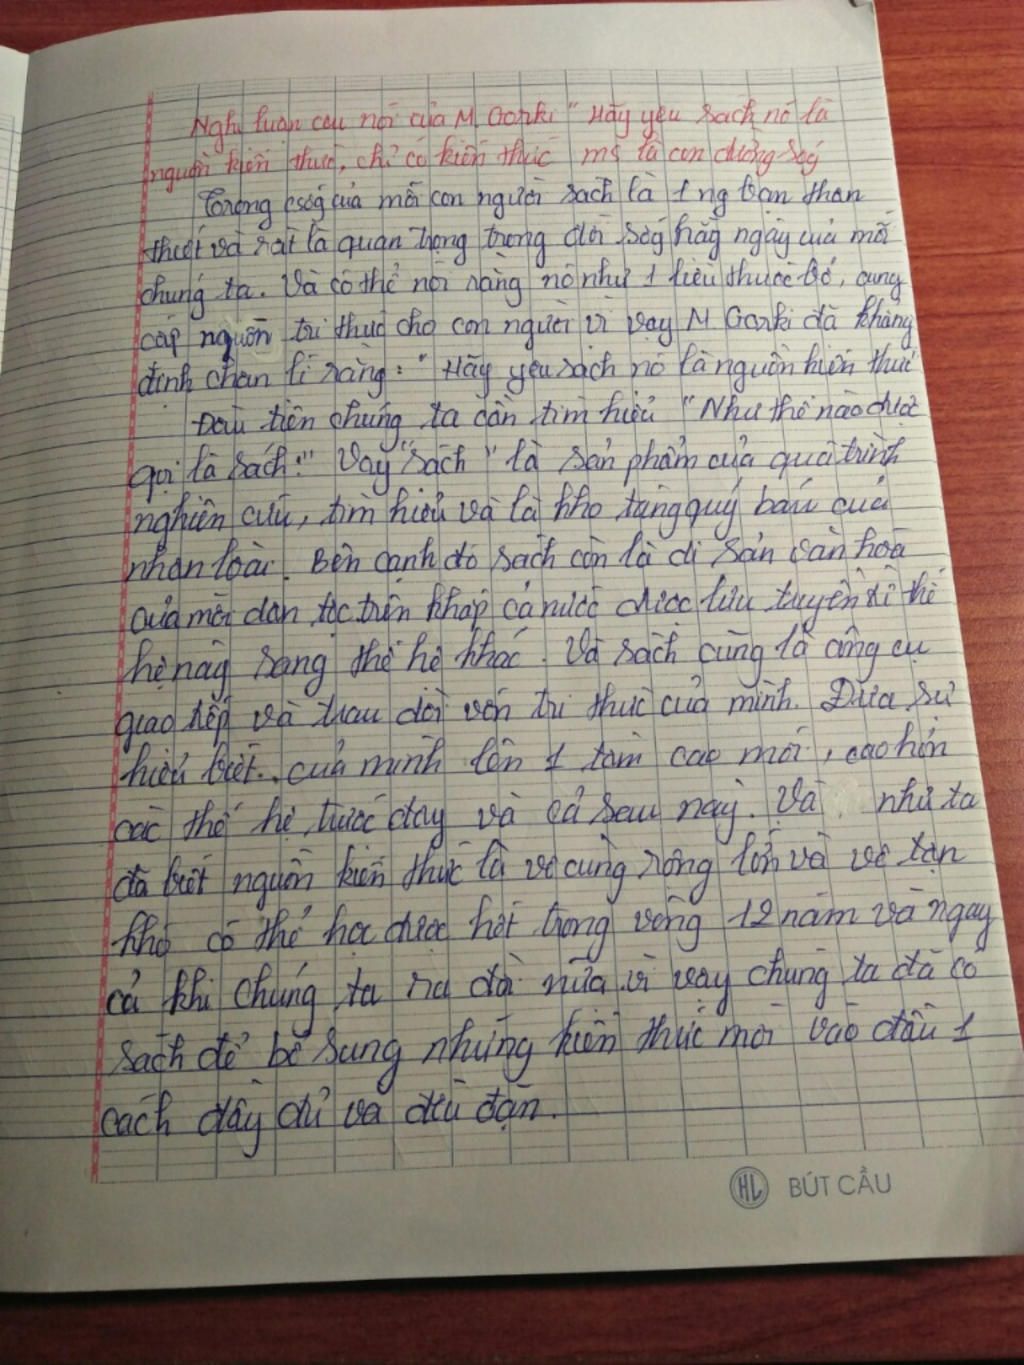 Nghị luận câu nói của M. Gorki "Hãy yêu sách nó là
nguồn kiến thức, chỉ có kiến thức ms là con đường sốg
Trong csốg của mỗi con người sách là 1 ng bạn thân
thiết và rất là quan trọng trong đời sốg hằg ngày của mỗi
chúng ta. Và có thể nói rằng nó như 1 liều thuốc bổ, cung
cấp nguồn tri thức cho con người vì vậy M. Gorki đã khẳng
định chân lí rằng: "Hãy yêu sách nó là nguồn kiến thức
Đầu tiên chúng ta cần tìm hiểu "Như thế nào được
gọi là sách:" Vậy "sách" là sản phẩm của quá trình
nghiên cứu, tìm hiểu và là kho tàng quý báu của
nhân loài. Bên cạnh đó sách còn là di sản văn hóa
của mỗi dân tộc trên khắp cả nước được lưu truyền từ thế
hệ này sang thế hệ khác. Và sách cũng là công cụ
giao tiếp và trau dồi vốn tri thức của mình. Đưa sự
hiểu biết.. của mình lên 1 tầm cao mới, cao hơn
các thế hệ trước đây và cả sau này. Và như ta
đã biết nguồn kiến thức là vô cùng rộng lớn và vô tận
khó có thể học được hết trong vòng 12 năm và ngay
cả khi chúng ta ra đời nữa. vì vậy chúng ta đã có
sách để bổ sung những kiến thức mới vào đầu 1
cách đầy đủ và đều đặn.
HL BÚT CẦU